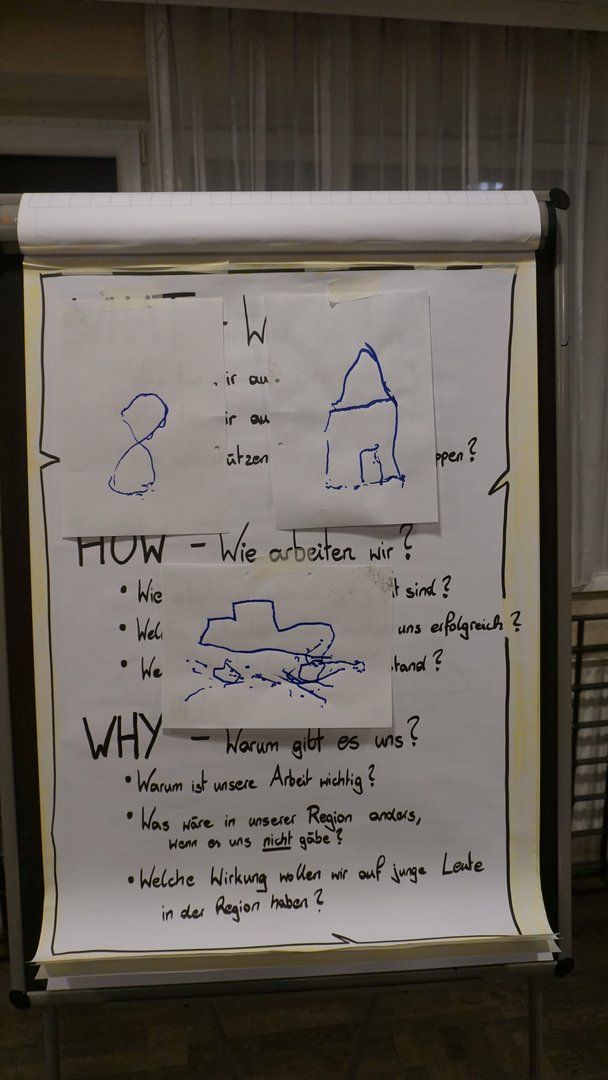 - W
ir au
ir au
ützen ppen?
HOW - Wie arbeiten wir?
• Wie t sind?
• Welc uns erfolgreich?
• We tand?
WHY - Warum gibt es uns?
• Warum ist unsere Arbeit wichtig?
• Was wäre in unserer Region anders,
wenn es uns nicht gäbe?
• Welche Wirkung wollen wir auf junge Leute
in der Region haben?